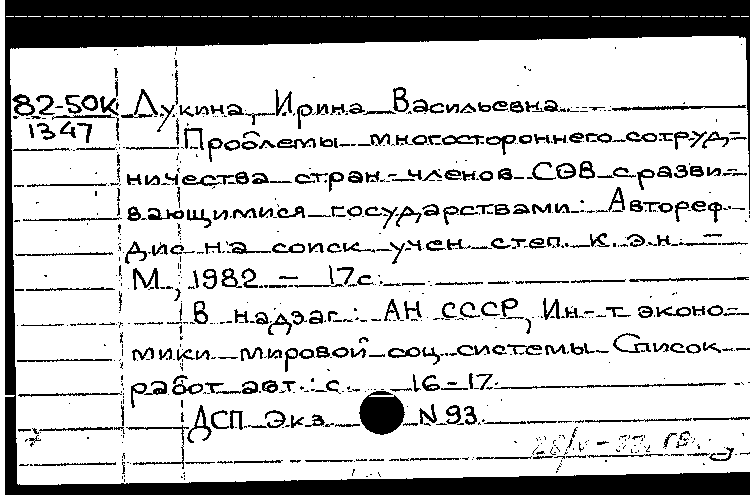 82-50К Лукина, Ирина Васильевна
1347
Проблемы многостороннего сотруд-
ничества стран-членов СЭВ с разви-
вающимися государствами: Автореф.
дис на соиск учен степ. к. э.н. –
М, 1982 – 17с.
В надзаг: АН СССР, Ин-т эконо-
мики мировой соц системы Список
работ авт.: с. 16-17.
ДСП Экз N 93